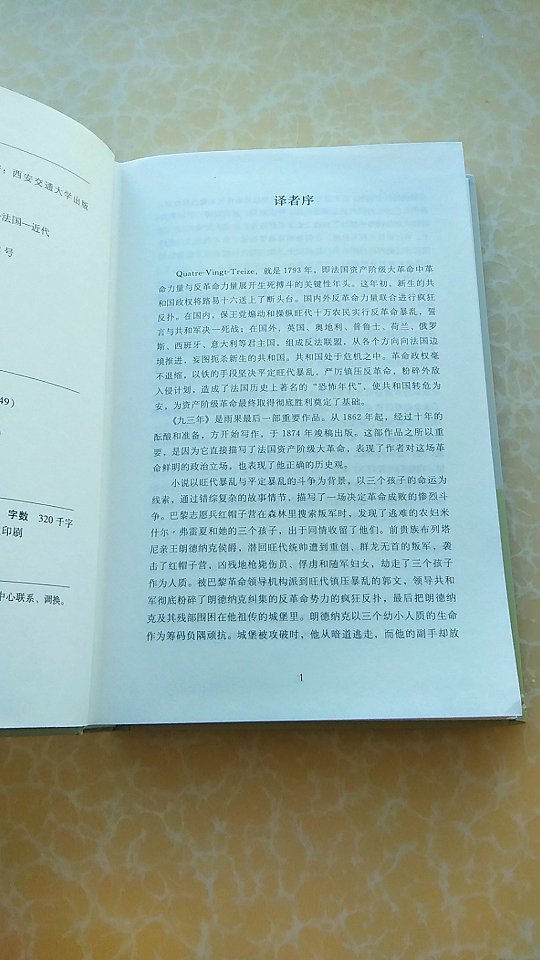 ：西安交通大学出版
法国—近代
号
49）
字数 320千字
印刷
中心联系、调换。
译者序
Quatre-Vingt-Treize，就是 1793 年，即法国资产阶级大革命中革
命力量与反革命力量展开生死搏斗的关键性年头。这年初，新生的共
和国政权将路易十六送上了断头台。国内外反革命力量联合进行疯狂
反扑。在国内，保王党煽动和操纵旺代十万农民实行反革命暴乱，誓
言与共和军决一死战；在国外，英国、奥地利、普鲁士、荷兰、俄罗
斯、西班牙、意大利等君主国，组成反法联盟，从各个方向向法国边
境推进，妄图扼杀新生的共和国。共和国处于危机之中。革命政权毫
不退缩，以铁的手段坚决平定旺代暴乱，严厉镇压反革命，粉碎外敌
入侵计划，造成了法国历史上著名的“恐怖年代”，使共和国转危为
安，为资产阶级革命最终取得彻底胜利奠定了基础。
《九三年》是雨果最后一部重要作品。从 1862 年起，经过十年的
酝酿和准备，方开始写作，于 1874 年竣稿出版。这部作品之所以重
要，是因为它直接描写了法国资产阶级大革命，表现了作者对这场革
命鲜明的政治立场，也表现了他正确的历史观。
小说以旺代暴乱与平定暴乱的斗争为背景，以三个孩子的命运为
线索，通过错综复杂的故事情节，描写了一场决定革命成败的惨烈斗
争。巴黎志愿兵红帽子营在森林里搜索叛军时，发现了逃难的农妇米
什尔·弗雷夏和她的三个孩子，出于同情收留了他们。前贵族布列塔
尼亲王朗德纳克侯爵，潜回旺代统帅遭到重创、群龙无首的叛军，袭
击了红帽子营，凶残地枪毙伤员、俘虏和随军妇女，劫走了三个孩子
作为人质。被巴黎革命领导机构派到旺代镇压暴乱的郭文，领导共和
军彻底粉碎了朗德纳克纠集的反革命势力的疯狂反扑，最后把朗德纳
克及其残部围困在他祖传的城堡里。朗德纳克以三个幼小人质的生命
作为筹码负隅顽抗。城堡被攻破时，他从暗道逃走，而他的副手却放
1